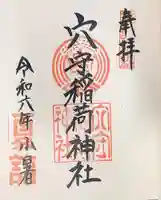 奉拝
穴守稲荷神社
令和六年小暑